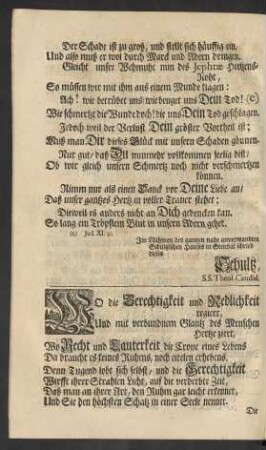 Der Schade ist zu groß, und stellt sich häuffig ein,
Und also muß er wol durch Marck und Adern dringen.
Gleicht unser Wehmuht nun des Jephtæ Hertzens-
Noht,
So müssen wir mit ihm aus einem Munde klagen:
Ach! wie betrübet uns/ wie beuget uns Dein Tod! (c)
Wie schmertzt die Wunde doch! die uns Dein Tod geschlagen.
Jedoch weil der Verlust Dein gröster Vortheil ist;
Muß man Dir dieses Glück mit unsern Schaden gönnen.
Nur gut/ daß Du nunmehr vollkommen seelig bist/
Ob wir gleich unsern Schmertz noch nicht verschmertzen
können.
Nimm nur als einen Danck vor Deine Liebe an/
Daß unser gantzes Hertz in voller Trauer stehet;
Dieweil es anders nicht an Dich gedencken kan.
So lang ein Tröpflein Blut in unsern Adern gehet.
(c) Jud. XI.
Im Nahmen des gantzen nahe anverwandten
Schultzischen Hauses in Stendal schrieb
dieses
Schultz,
S.S. Theol. Candid.
WO die Gerechtigkeit und Redlichkeit
regiert,
Und mit verbundnem Glantz des Menschen
Hertze ziert,
Wo Recht und Lauterkeit die Crone eines Lebens
Da braucht es keines Ruhms, noch eitelen erhebens.
Denn Tugend lobt sich selbst, und die Gerechtigkeit
Wirfft ihrer Strahlen Licht, auf die verderbte Zeit,
Daß man an ihrer Art, den Ruhm gar leicht erkennet,
Und Sie den höchsten Schatz in einer Seele nennet.
Die